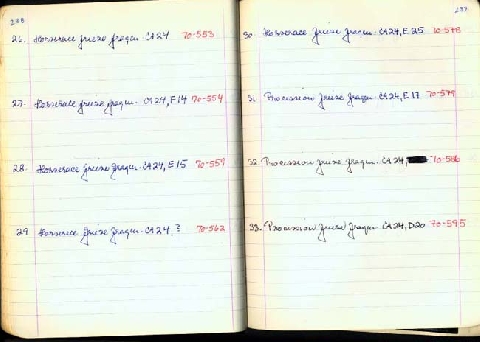 236
26. Horserace frieze fragm. CA24 70-553
27. Horserace frieze fragm. CA24, F14 70-554
28. Horserace frieze fragm. CA24, E15 70-557
29 Horserace frieze fragm. CA24 ? 70-562
237
30. Horserace frieze fragm. CA24, E25 70-578
31. Procession frieze fragm. CA24, E17 70-579
32. Procession frieze fragm. CA24, 70-586
33. Procession frieze fragm. CA24, D20 70-595